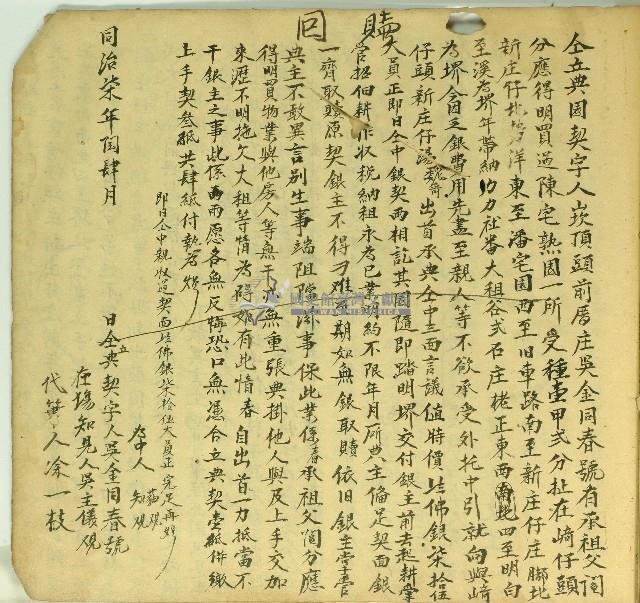 贖回
仝立典園契字人崁頂頭前厝庄吳金同春號有承祖父鬮
分應得明買過陳宅熟園一所受種壹甲弍分址在崎仔頭
新庄仔北勢洋東至潘宅園西至旧車路南至新庄仔庄脚北
至溪為堺年帶納力力社番大租谷弍石庄栳正東西南北四至明白
為堺今因乏銀費用先盡至親人等不欲承受外托中引就向與崎
仔頭新庄仔湯魏 出首承典仝中三面言議值時價 佛銀柒拾伍
大員正即日仝中銀契兩相記其園隨即踏明堺交付銀主前去起耕掌
管招佃耕作收稅納租永為己業明約不限年月所典主備足契面銀
一齊取贖原契銀主不得刁难 期如無銀取贖依旧銀主掌管
典主不敢異言別生事端阻隢滋事保此業係春承祖父鬮分應
得明買物業與他房人等無干亦無重張典掛他人與及上手交加
來歷不明拖欠大租等情為碍如有此情春自出首一力抵當不
干銀主之事此係兩面愿各無反悔恐口無憑合立典契壹紙併繳
上手契叁紙共肆紙付執為炤
即日仝中親收過契面 佛銀柒拾伍大員正完足再炤
為中人
知覌
同治柒年閏肆月 日仝立典契字人吳金同春號
在場知見人吳主儀覌
代筆人凃一枝